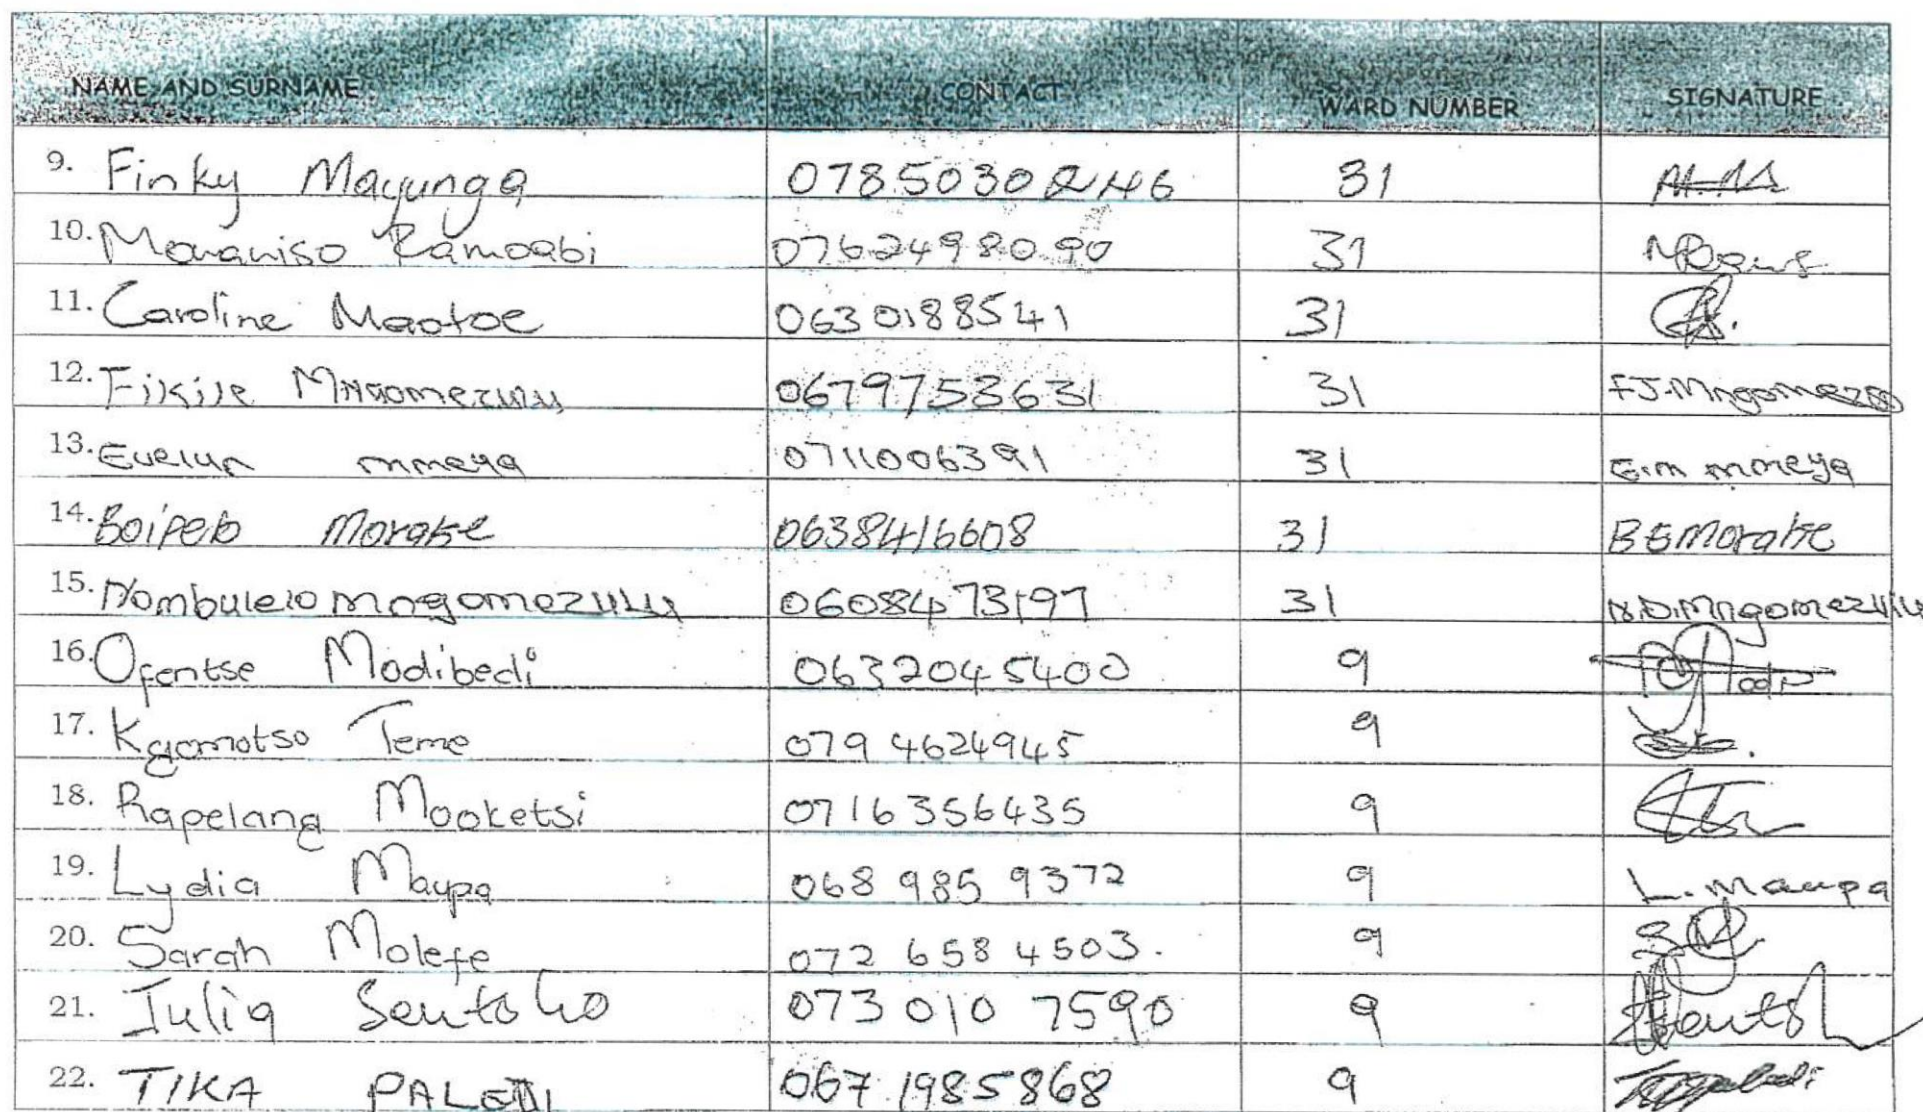 NAME AND SURNAME CONTACT WARD NUMBER SIGNATURE
9. Finky Mayunga 0785030246 31
10. Ramoabi 0762498090 31
11. Caroline Maotoe 0630188541 31
12. Fikile Mngomezulu 0679753631 31 F.J.Mngomezulu
13. Evelyn mmeya 0711006391 31 E.m mmeya
14. Boipelo Morake 0638416608 31 BEMorake
15. Nombulelo mngomezulu 0608473197 31 N.D.Mngomezulu
16. Ofentse Modibedi 0632045400 9
17. Kgomotso Teme 079 4624945 9
18. Rapelang Mooketsi 0716356435 9
19. Lydia Maupa 068 985 9372 9 L. Maupa
20. Sarah Molefe 072 658 4503. 9
21. Julia Sentsho 073 010 7590 9
22. TIKA 067 1985868 9